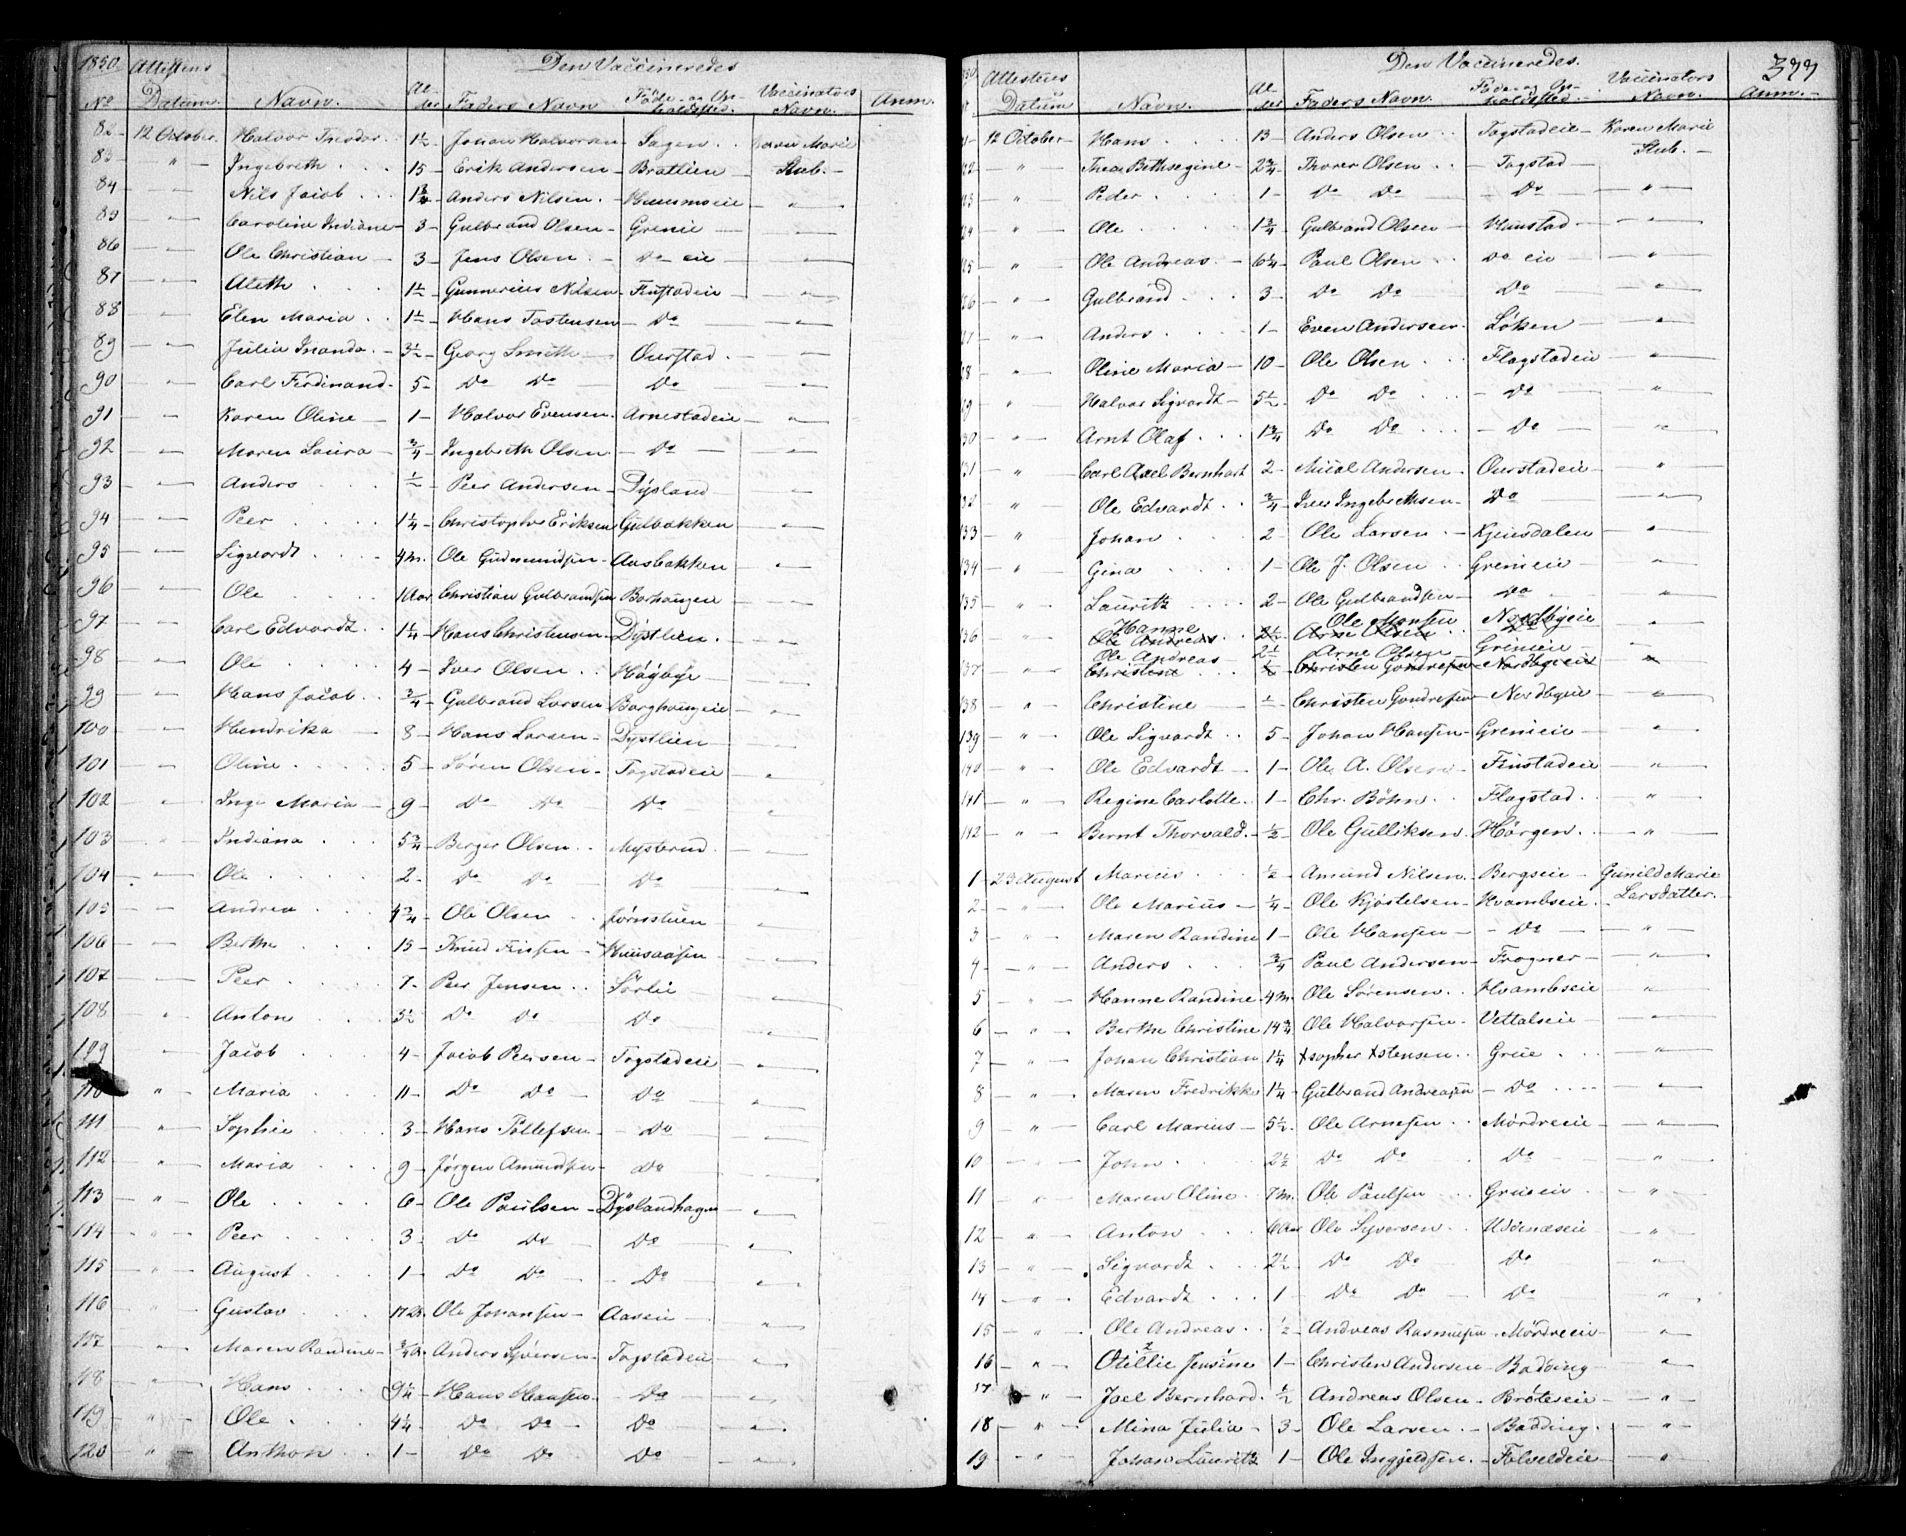 1850 Attestens Den Vaccineredes
No Datum Navn. Al- der Faders Navn Føde- og Op- holdsted. Vaccinators Navn. Anm.
82 12 October. Halvor Theodor 1½ Johan Halvorsen Sagen Karen Marie
83 " Ingebreth 15 Erik Andersen Brattlien Stub.
84 Nils Jacob 1¾ Anders Nilsen "
85 3 Gulbrand Olsen Grenie "
86 Ole Christian 3 Jens Olsen Do eie "
87 Aleth 1½ Gunnerius Nilsen Finstadeie "
88 Elen Maria 1½ Hans Tostensen Do "
89 Julia Inanda 3½ Georg Smith Ourstad "
90 Carl Ferdinand 5 Do Do Do "
91 Karen Oline 1 Halvor Evensen Arnestadeie "
92 Maren Laura ¾ Ingebreth Olsen Do "
93 Anders ½ Peer Andersen Dysland "
94 Peer 1¼ Christopher Eriksen Gulbakken "
95 Sigvardt 4m. Ole Gudmundsen Aasbakken "
96 Ole 10aar Christian Gulbrandsen Borhaugen "
97 Carl Edvardt 1¼ Hans Christensen Dystlien "
98 Ole 4 Iver Olsen Høgbye "
99 Hans Jacob ¾ Gulbrand Larsen Borghaugeie "
100 Hendrika 8 Hans Larsen Dystlien "
101 Oline 5 Søren Olsen Togstadeie "
102 Inge Maria 9 Do Do Do "
103 Indiana 5¾ Berger Olsen Mysterud "
104 Ole 2 Do Do Do "
105 Andrea 4¾ Ole Olsen Jørnstuen "
106 Berthe 15 Knud Huusaasen "
107 Peer 7 Peer Jensen Sørlie "
108 Anton 5½ Do Do Do "
109 Jacob 4 Jacob Peersen Togstadeie "
110 " Maria 11 Do Do Do "
111 " Sophie 3 Hans Tollefsen Do "
112 " Maria 9 Jørgen Amundsen Do "
113 " Ole 6 Ole Paulsen Dyslandhagen "
114 " Peer 3 Do Do Do "
115 " August 1 Do Do Do "
116 " Gustav Ole Johansen Aaseie "
117 " Maren Randine Anders Syversen Togstadeie "
118 " Hans 9¼ Hans Hansen Do "
119 " Ole 4¼ Do Do Do "
120 " Anthon 1 Do Do Do "
Attestens Den Vaccineredes. 377
Datum Navn. Al- der Faders Navn. Føde og Op- holdsted. Vaccinators Navn. Anm.
12 October Hans 13 Anders Olsen Togstadeie Karen Marie
" Thea Bethsegine 2¾ Thorer Olsen Togstad Stub.
" Peder 1 Do Do Do "
" Ole 1¾ Gulbrand Olsen Hunstad "
" Ole Andreas 6¼ Paul Olsen Do eie "
" Gulbrand 3 Do Do Do "
" Anders 1 Even Andersen Løken "
" Oline Maria 10 Ole Olsen Flagstadeie "
" Halvor Sigvardt 5½ Do Do Do "
130 " Arnt Olaf 1¾ Do Do Do "
131 " Carl Axel Bernhart 2 Andersen Ourstadeie "
132 " Ole Edvardt ¾ Iver Ingebrethsen Do "
133 " Johan 2 Ole Larsen Kjensdalen "
134 " Gina 1 Ole J. Olsen Grenieie "
135 " Lauritz 2 Ole Gulbrandsen Do
Hanne Ole Hansen Nordbyeie
136 " Ole Andreas 2½ Arne Olsen Do
Ole Andreas 2½ Arne Olsen Grenieie
137 " Christine ½ Christen Gundersen Nordbyeie "
138 " Christine Christen Gundersen Nordbyeie "
139 " Ole Sigvardt 5 Johan Hansen Grenieie "
140 " Ole Edvardt 1 Ole A. Olsen Finstadeie "
141 " Regine Carlotte 1 Chr. Bøhn Flagstad "
142 " Bernt Thorvald ½ Ole Gulliksen Hørgen "
1 23 August Marius ½ Amund Nilsen Bergseie Gunild Marie
2 " Ole Marius ¼ Ole Kjøstelsen Hvambseie Larsdatter.
3 " Maren Randine 1 Ole Hansen Do "
4 " Anders ¾ Paul Andersen Frogner "
5 " Hanne Randine 4m Ole Sørensen Hvambseie "
6 " Berthe Christine 14¾ Ole Halvorsen Vettalseie "
7 " Johan Christian 1¼ Xtopher Xstensen Grue "
8 " Maren Fredrikke 1¼ Gulbrand Andreasen Do "
9 " Carl Marius 5½ Ole Arnesen Mørdreeie "
10 " John 2½ Do Do Do "
11 " Maren Oline 7m. Ole Paulsen Grueeie "
12 " Anton 6aar Ole Syversen Udenæseie "
13 " Sigvardt 2½ Do Do Do "
14 " Edvardt 1 Do Do Do "
15 " Ole Andreas ½ Andreas Rasmusen Mørdreeie "
16 " Otillie Jensine 1 Christen Andersen Badding "
17 " Joel Bernhard ½ Andreas Olsen Brøteseie "
18 " Mina Julia 3 Ole Larsen Badding "
19 " Johan Lauritz 1 Ole Ingjeldsen Folveldeie "